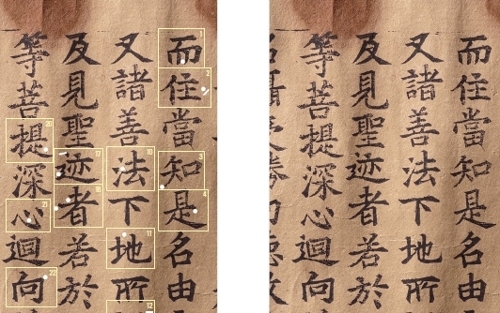 而住當知是名由
又諸善法下地所
及見聖迹者若於
等菩提深心迴向
而住當知是名由
又諸善法下地所
及見聖迹者若於
等菩提深心迴向